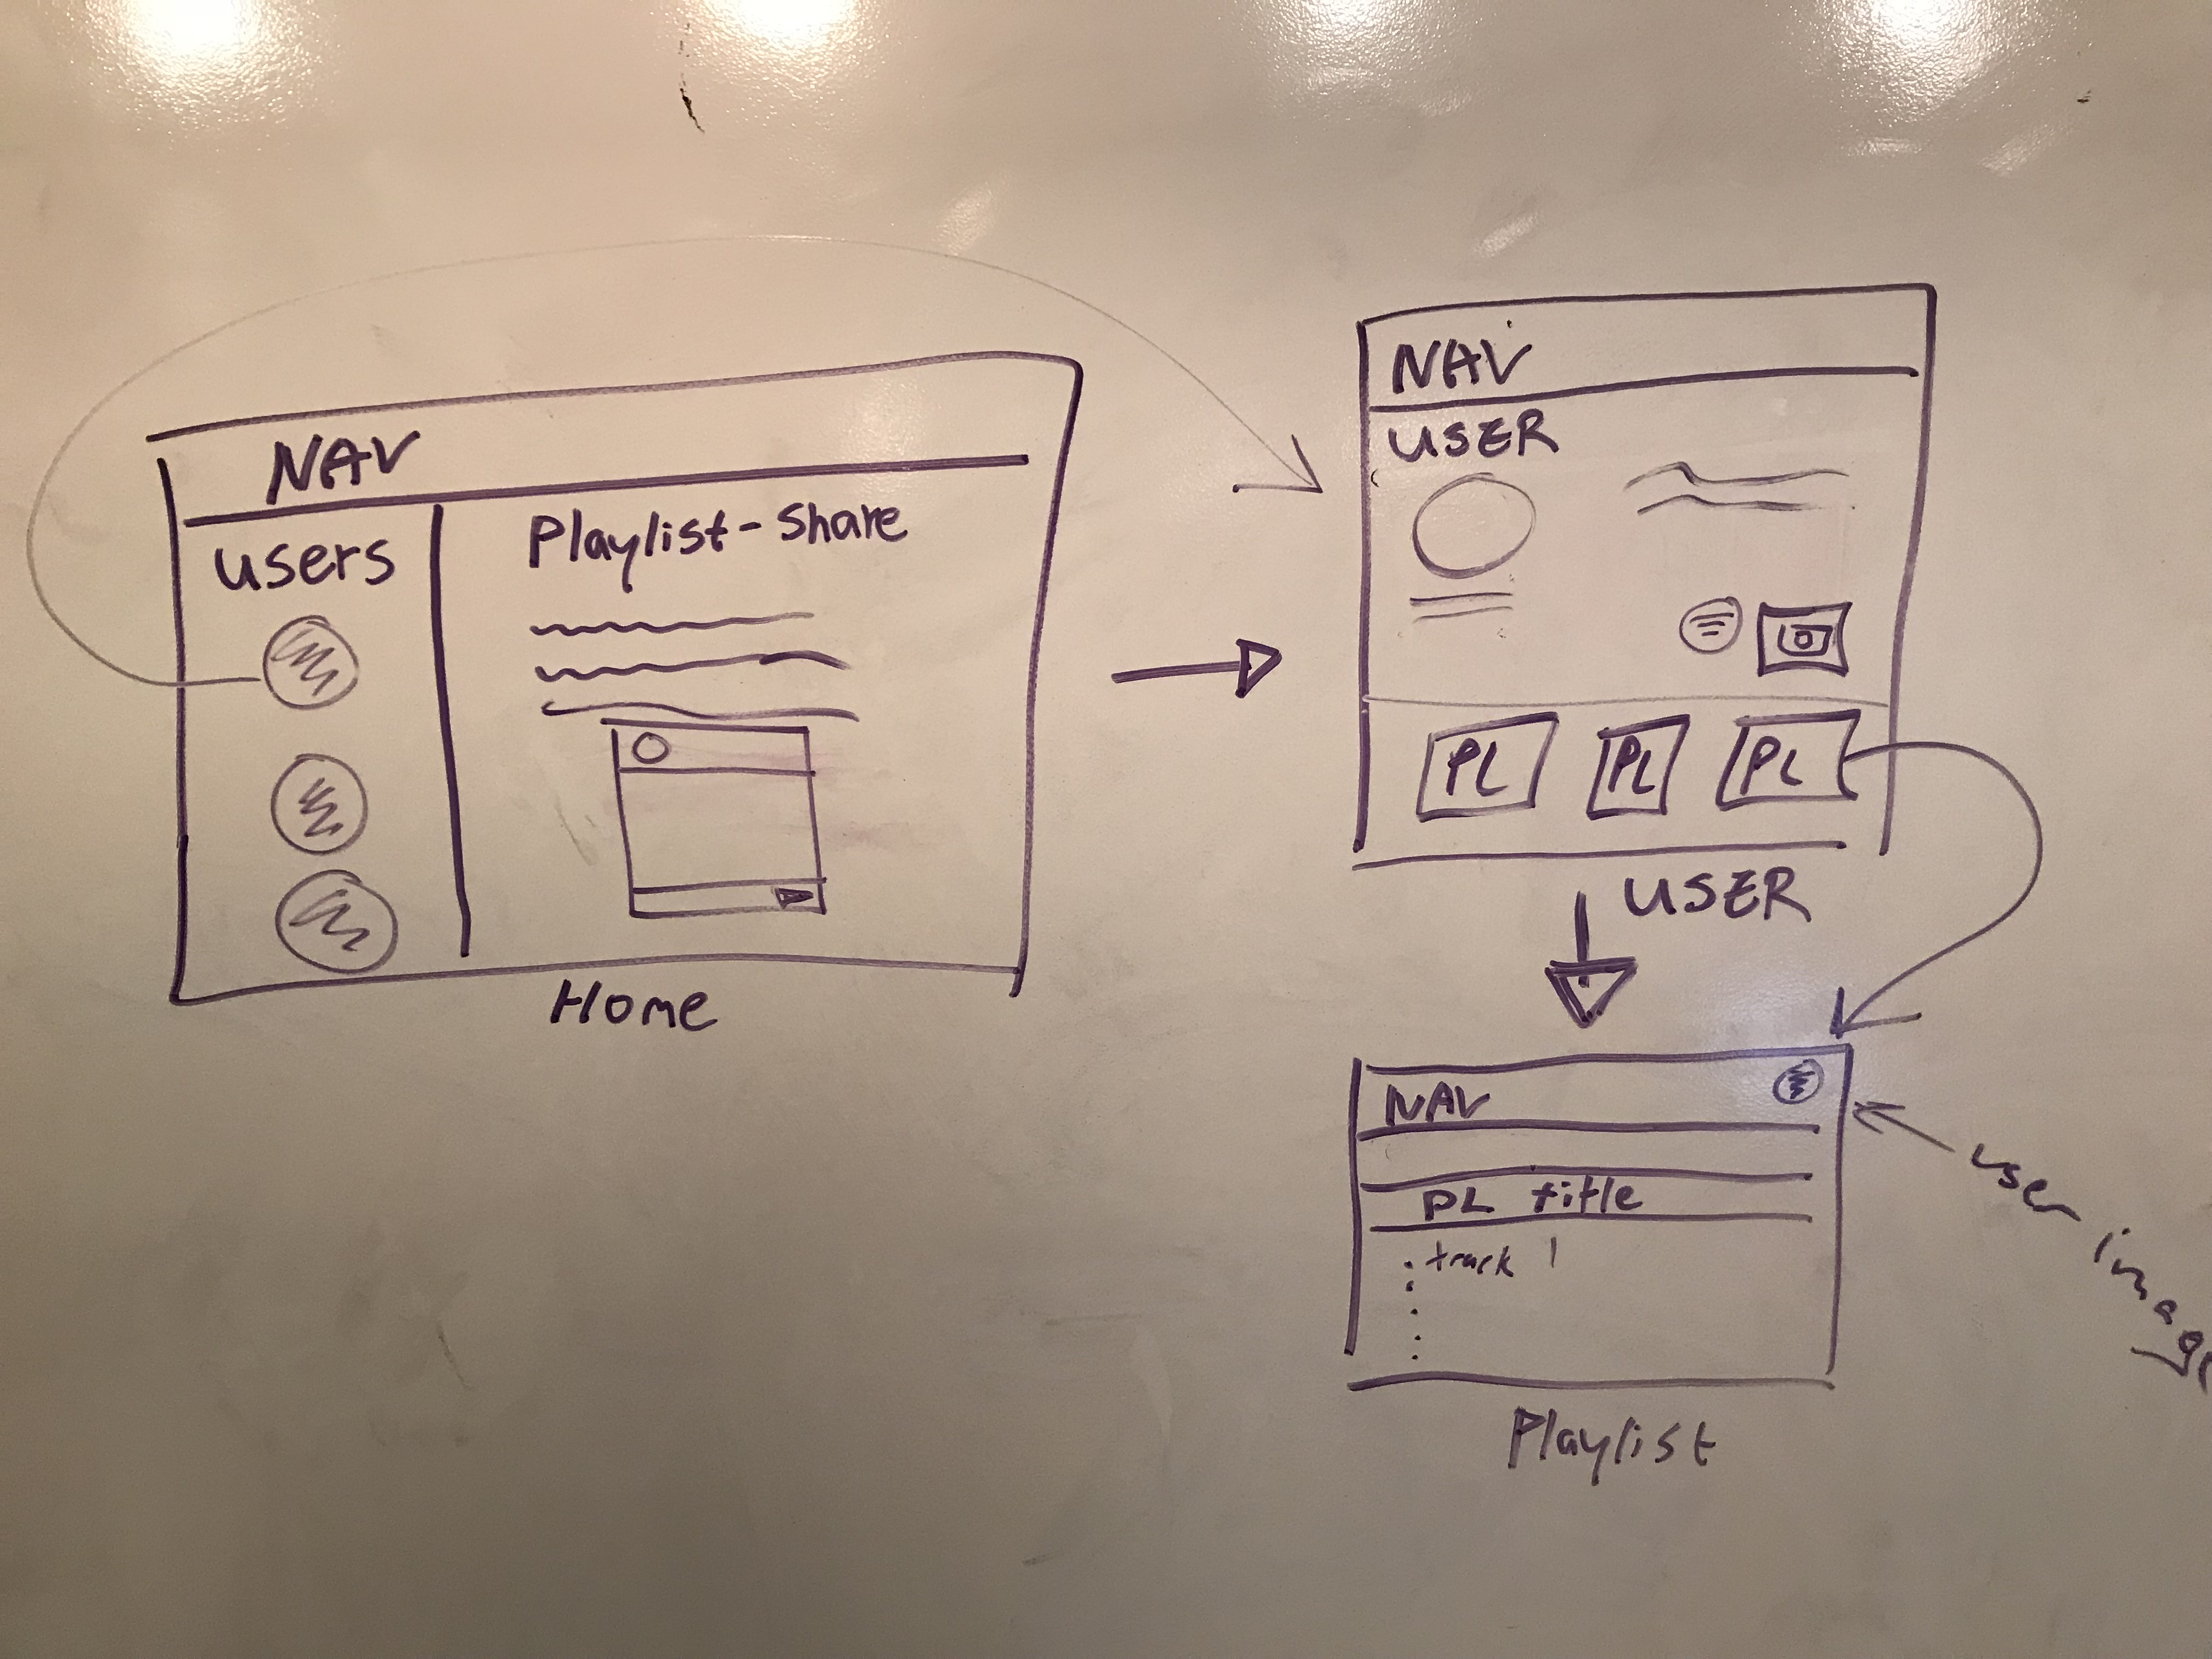 NAV
users
Playlist-share
Home
NAV
USER
PL PL PL
USER
NAV
PL title
track 1
Playlist
user image